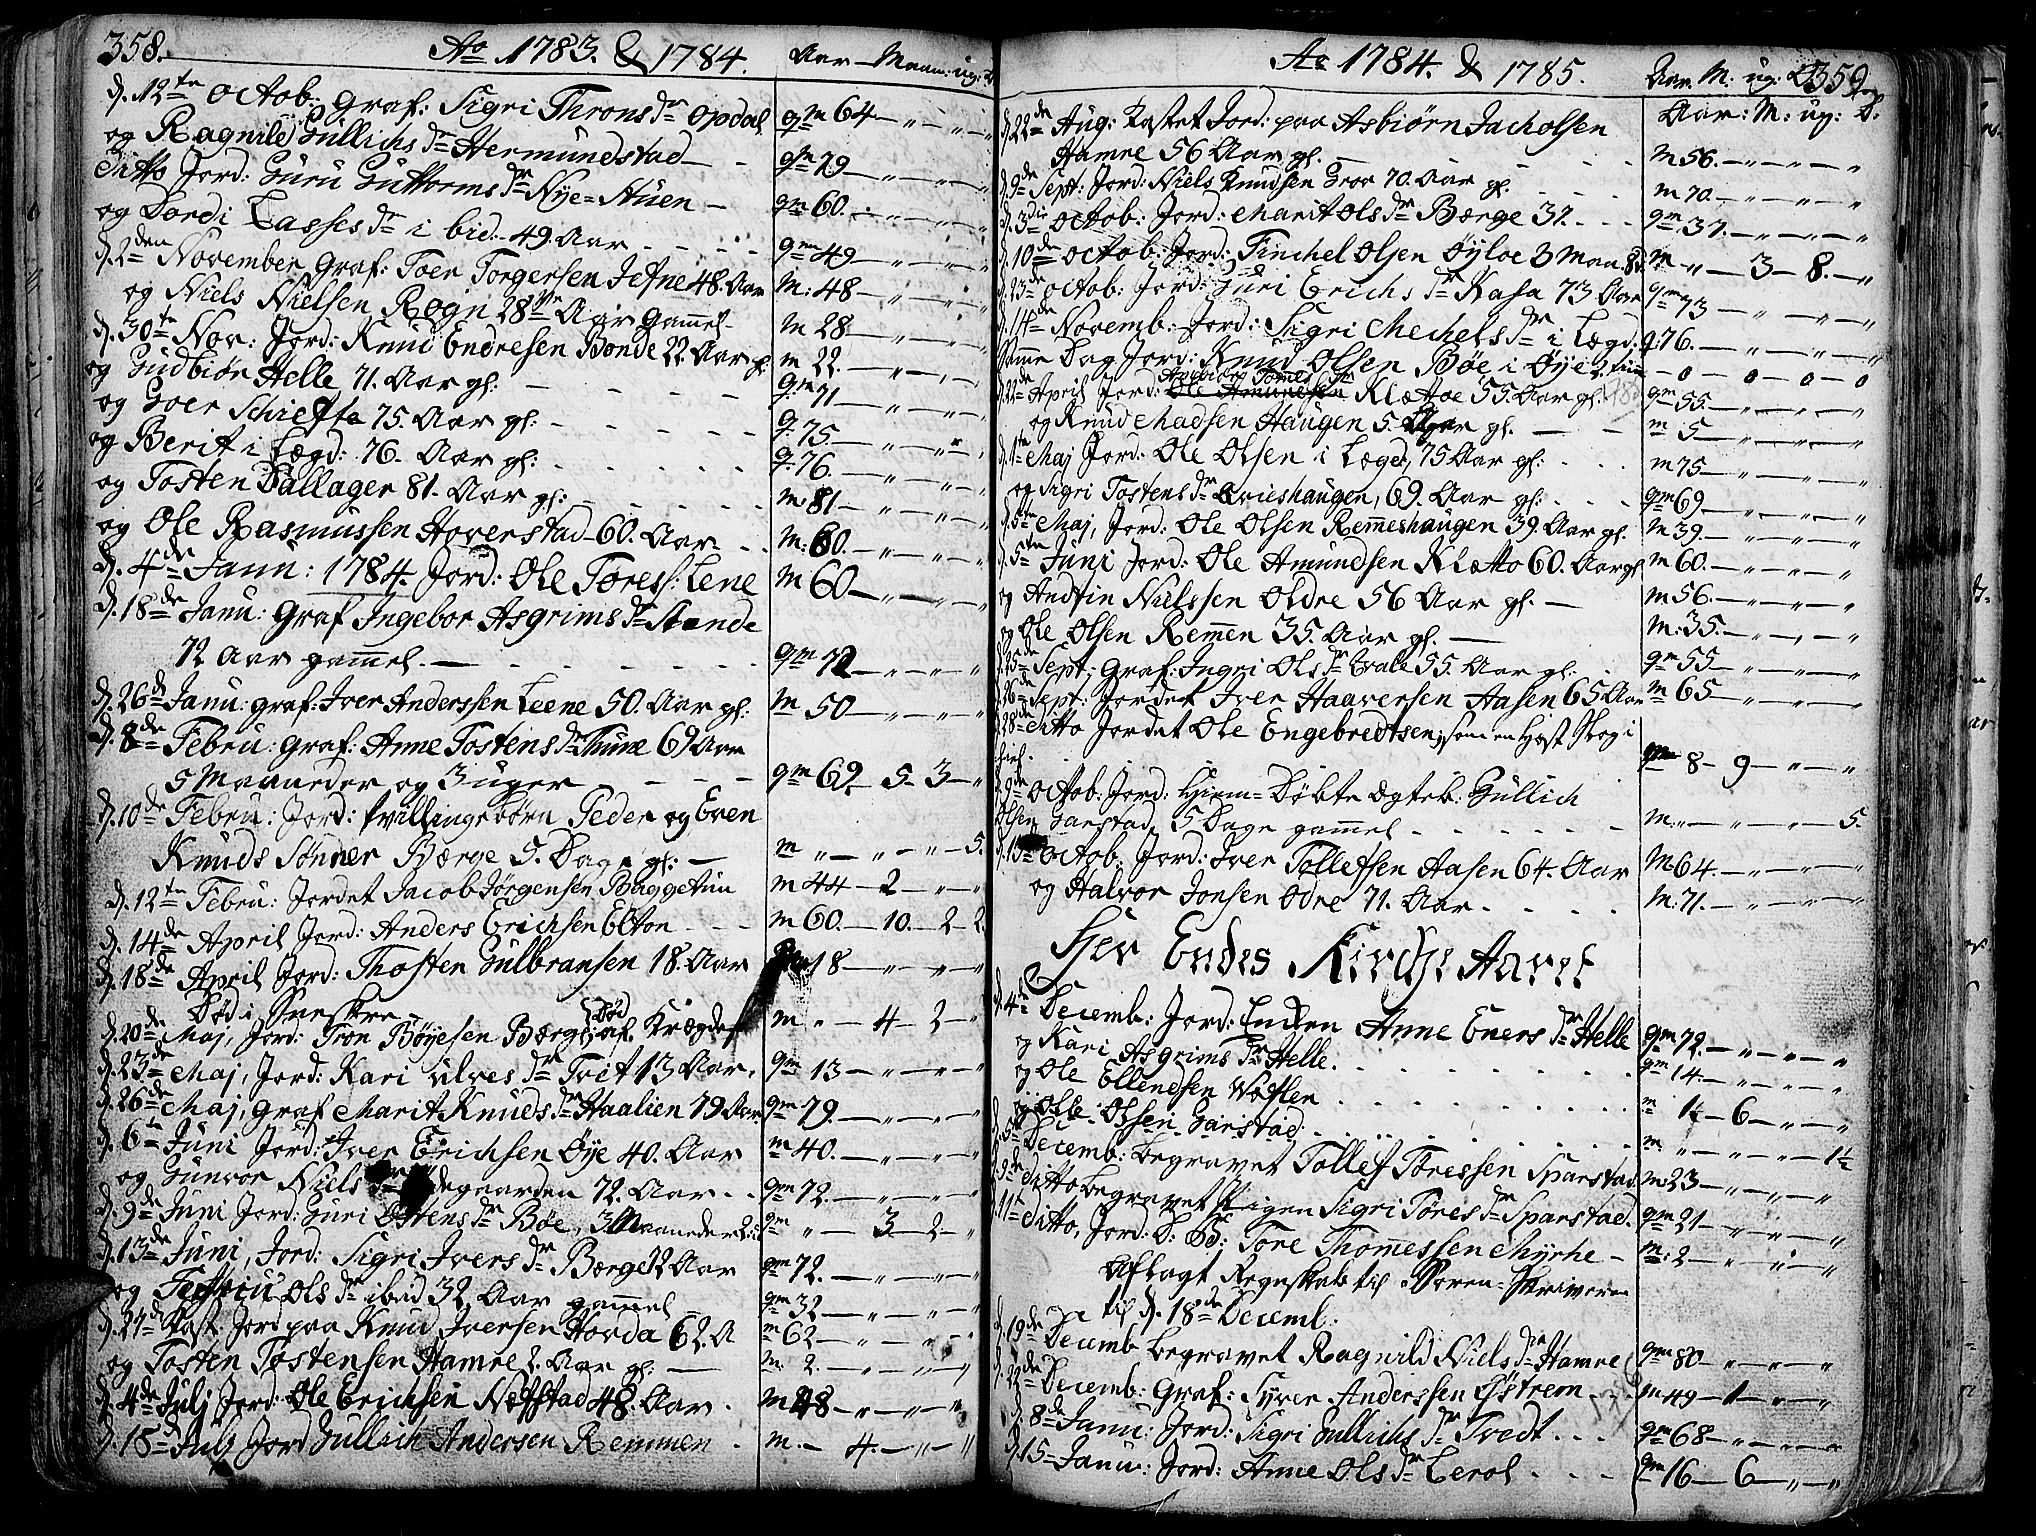 358.
Ao 1783. & 1784.
Aar — Maan: ug: D.
d. 12te Octob: Graf: Sigri Throns dr Opdal qm 64 — " — " — "
og Ragnild Gullichs dr Hermundstad — qm 79 — " — " — "
Ditto Jord: Guru Guttorms dr Nye=Stuen — qm 60. — " — " — "
og Dordi Lasses dr i bid. 49. Aar qm 49 — " — " — "
d. 2den November Graf: Toer Torgersen Jefne 48. Aar M: 48 — " — " — "
og Niels Nielsen Rogn 28de Aar gamel M 28 — " — " — "
d. 30te Nov: Jord: Knud Endresen Bonde 22. Aar gl. m 22. — " — " — "
og Gudbiør Helle 71. Aar gl: qm 71 — " — " — "
og Goer Schieffe 75. Aar gl: q. 75 — " — " — "
og Berit i Lægd: 76. Aar gl: q. 76. — " — " — "
og Tosten Dallager 81. Aar gl: m: 81 — " — " — "
og Ole Rasmussen Hoverstad 60. Aar m: 60. — " — " — "
d. 4de Janu: 1784. Jord: Ole Toress: Lene M 60 — " — " — "
d. 18de Janu: Graf Ingebor Asgrims dr Stende
72 Aar gamel. — qm 72 — " — " — "
d. 26d Janu: graf. Iver Anderssen Leene 50. Aar gl: m 50 — " — " — "
d. 8de Febru: Graf: Anne Tostens dr Thune 69 Aar
5 Maaneder og 3 uger qm 69 — 5 — 3 — "
d. 10de Febru: Jord: tvillingebørn Peder og Even
Knuds Sønner Børge 5. Dage gl: — m " — " — " — 5.
d. 12te Febru: Jordet Jacob Jørgensen Baggetun m 44 — 2 — " — "
d. 14de April Jord: Anders Erichsen Elton m 60. — 10. — 2 — 2
d. 18de April Jord: Thosten Gulbransen 18. Aar 18 — " — " — "
Død i Sveskre
d. 20de Maj, Jord: Tron Bøyesen Børge, Død af Krægdes m " — 4 — 2 — "
d. 23de Maj, Jord: Kari Ulves dr Tvet 13 Aar. qm 13 — " — " — "
d. 26de Maj, Graf Marit Knuds dr Haalien 79 Aar qm 79. — " — " — "
d. 6te Juni Jord: Iver Erichsen Øye 40. Aar m 40. — " — " — "
og Gunvor Niels degaarden 72. Aar qm 72. — " — " — "
d. 9de Juni Jord: Guri Ostens dr Bøe, 3 Maaneder 2: qm " — 3 — 2 — "
d. 13de Juni, Jord: Sigri Ivers dr Børge 72 Aar qm 72. — " — " — "
og Ols dr ibid 32 Aar gamel qm 32 — " — " — "
d. 27d Kast Jord paa Knud Iversen Hovda 62. A m 62 — " — " — "
og Tosten Tostensen Hamre 2. Aar gl: — m. 2. — " — " — "
d. 4de Julj Jord: Ole Erichsen Nøfstad 48. Aar m 48 — " — " — "
d. 18d Julj Jord Gullich Andersen Remmen m. — 4. — " — "
Ao 1784. & 1785.
Aar. M: ug: D 359
Aar: M: ug: D.
d. 22de Aug: Kastet Jord: paa Asbiørn Jacholsen
Hamre 56 Aar gl. — M 56. — " — " — "
d. 9de Sept: Jord: Niels Knudsen Groe 70. Aar gl. m 70. — " — " — "
d. 3die Octob: Jord: Marit Ols dr Børge 37. qm 37. — " — " — "
d. 10de Octob: Jord: Finchel Olsen Øyloe 3 Maa. 8 m " — 3 — 8. — "
d. 23de Octob: Jord: Guri Erichs dr Kasa 73 Aar qm 73 — " — " — "
d. 14de Novemb: Jord: Sigri Mechels dr i Lægd: q. 76. — " — " — "
Samme Dag Jord: Knud Olsen Bøe i Øye — o — o — o — o
d. 22de April Jord: Ole Amundsen Kløttoe 55. Aar gl. qm 55. — " — " — "
og Knud Madsen Haugen 5. Aar gl. — m 5 — " — " — "
d. 1te Maj Jord: Ole Olsen i Læged, 75 Aar gl: m 75 — " — " — "
og Sigri Tostens dr Qvieshaugen, 69. Aar gl: qm 69 — " — " — "
d. 5te Maj, Jord: Ole Olsen Remeshaugen 39. Aar gl. m 39. — " — " — "
d. 5te Juni Jord: Ole Amundsen Kløtto 60. Aar gl m 60. — " — " — "
og Andfin Nielssen Oldre 56 Aar gl. — m 56. — " — " — "
og Ole Olsen Remen 35. Aar gl. — m. 35. — " — " — "
d. 25de Sept: Graf: Ingri Ols dr Qvale 55. Aar gl. qm 55 — " — " — "
d. 26de Sept: Jordet Iver Haaversen Aasen 65 Aar m 65 — " — " — "
d. 28de Ditto Jordet Ole Engebredtsen, som en Hest Slog i
hiel. 8 — 9 — " — "
d. 9de Octob: Jord: Hiem=Døbte ægteb: Gullich
Olsen Garstad, 5 Dage gamel m: " — " — " — 5.
d. 15de Octob: Jord: Iver Tollefsen Aasen 64. Aar M 64. — " — " — "
og Halvor Jonsen Odre 71. Aar m: 71. — " — " — "
Her Endes Kirche Aaret
d. 4de Decemb: Jord: Encken Anne Eners dr Helle qm 72. — " — " — "
og Kari Asgrims dr Helle. qm 14. — " — " — "
og Ole Ellendsen Woflen m 14 — 6 — " — "
og Ole Olsen Garstad m " — " — " — 1½
d. 5te Decemb: begravet Tollef Toressen Sparstad m 23 — " — " — "
d. 9de Ditto begravet Pigen Sigri Tores dr Sparstad. qm 21 — " — " — "
d. 11te Ditto, Jord: D. B: Tore Thomessen Myrhe — m: 2 — " — " — "
Aflagt Regnskab til Soren=Skriveren
til d. 18de Deceml:
d. 19de Decemb begravet Ragnild Niels dr Hamre qm 80 — " — " — "
d. 22de Decemb: Graf: Syver Anderssen Østrem m 49 — 1 — " — "
d. 8de Janu: Jord: Sigri Gullichs dr Tvedt qm 68 — " — " — "
d. 15 Janu: Jord: Anne Ols dr Lerol qm 16 — 6 — " — "